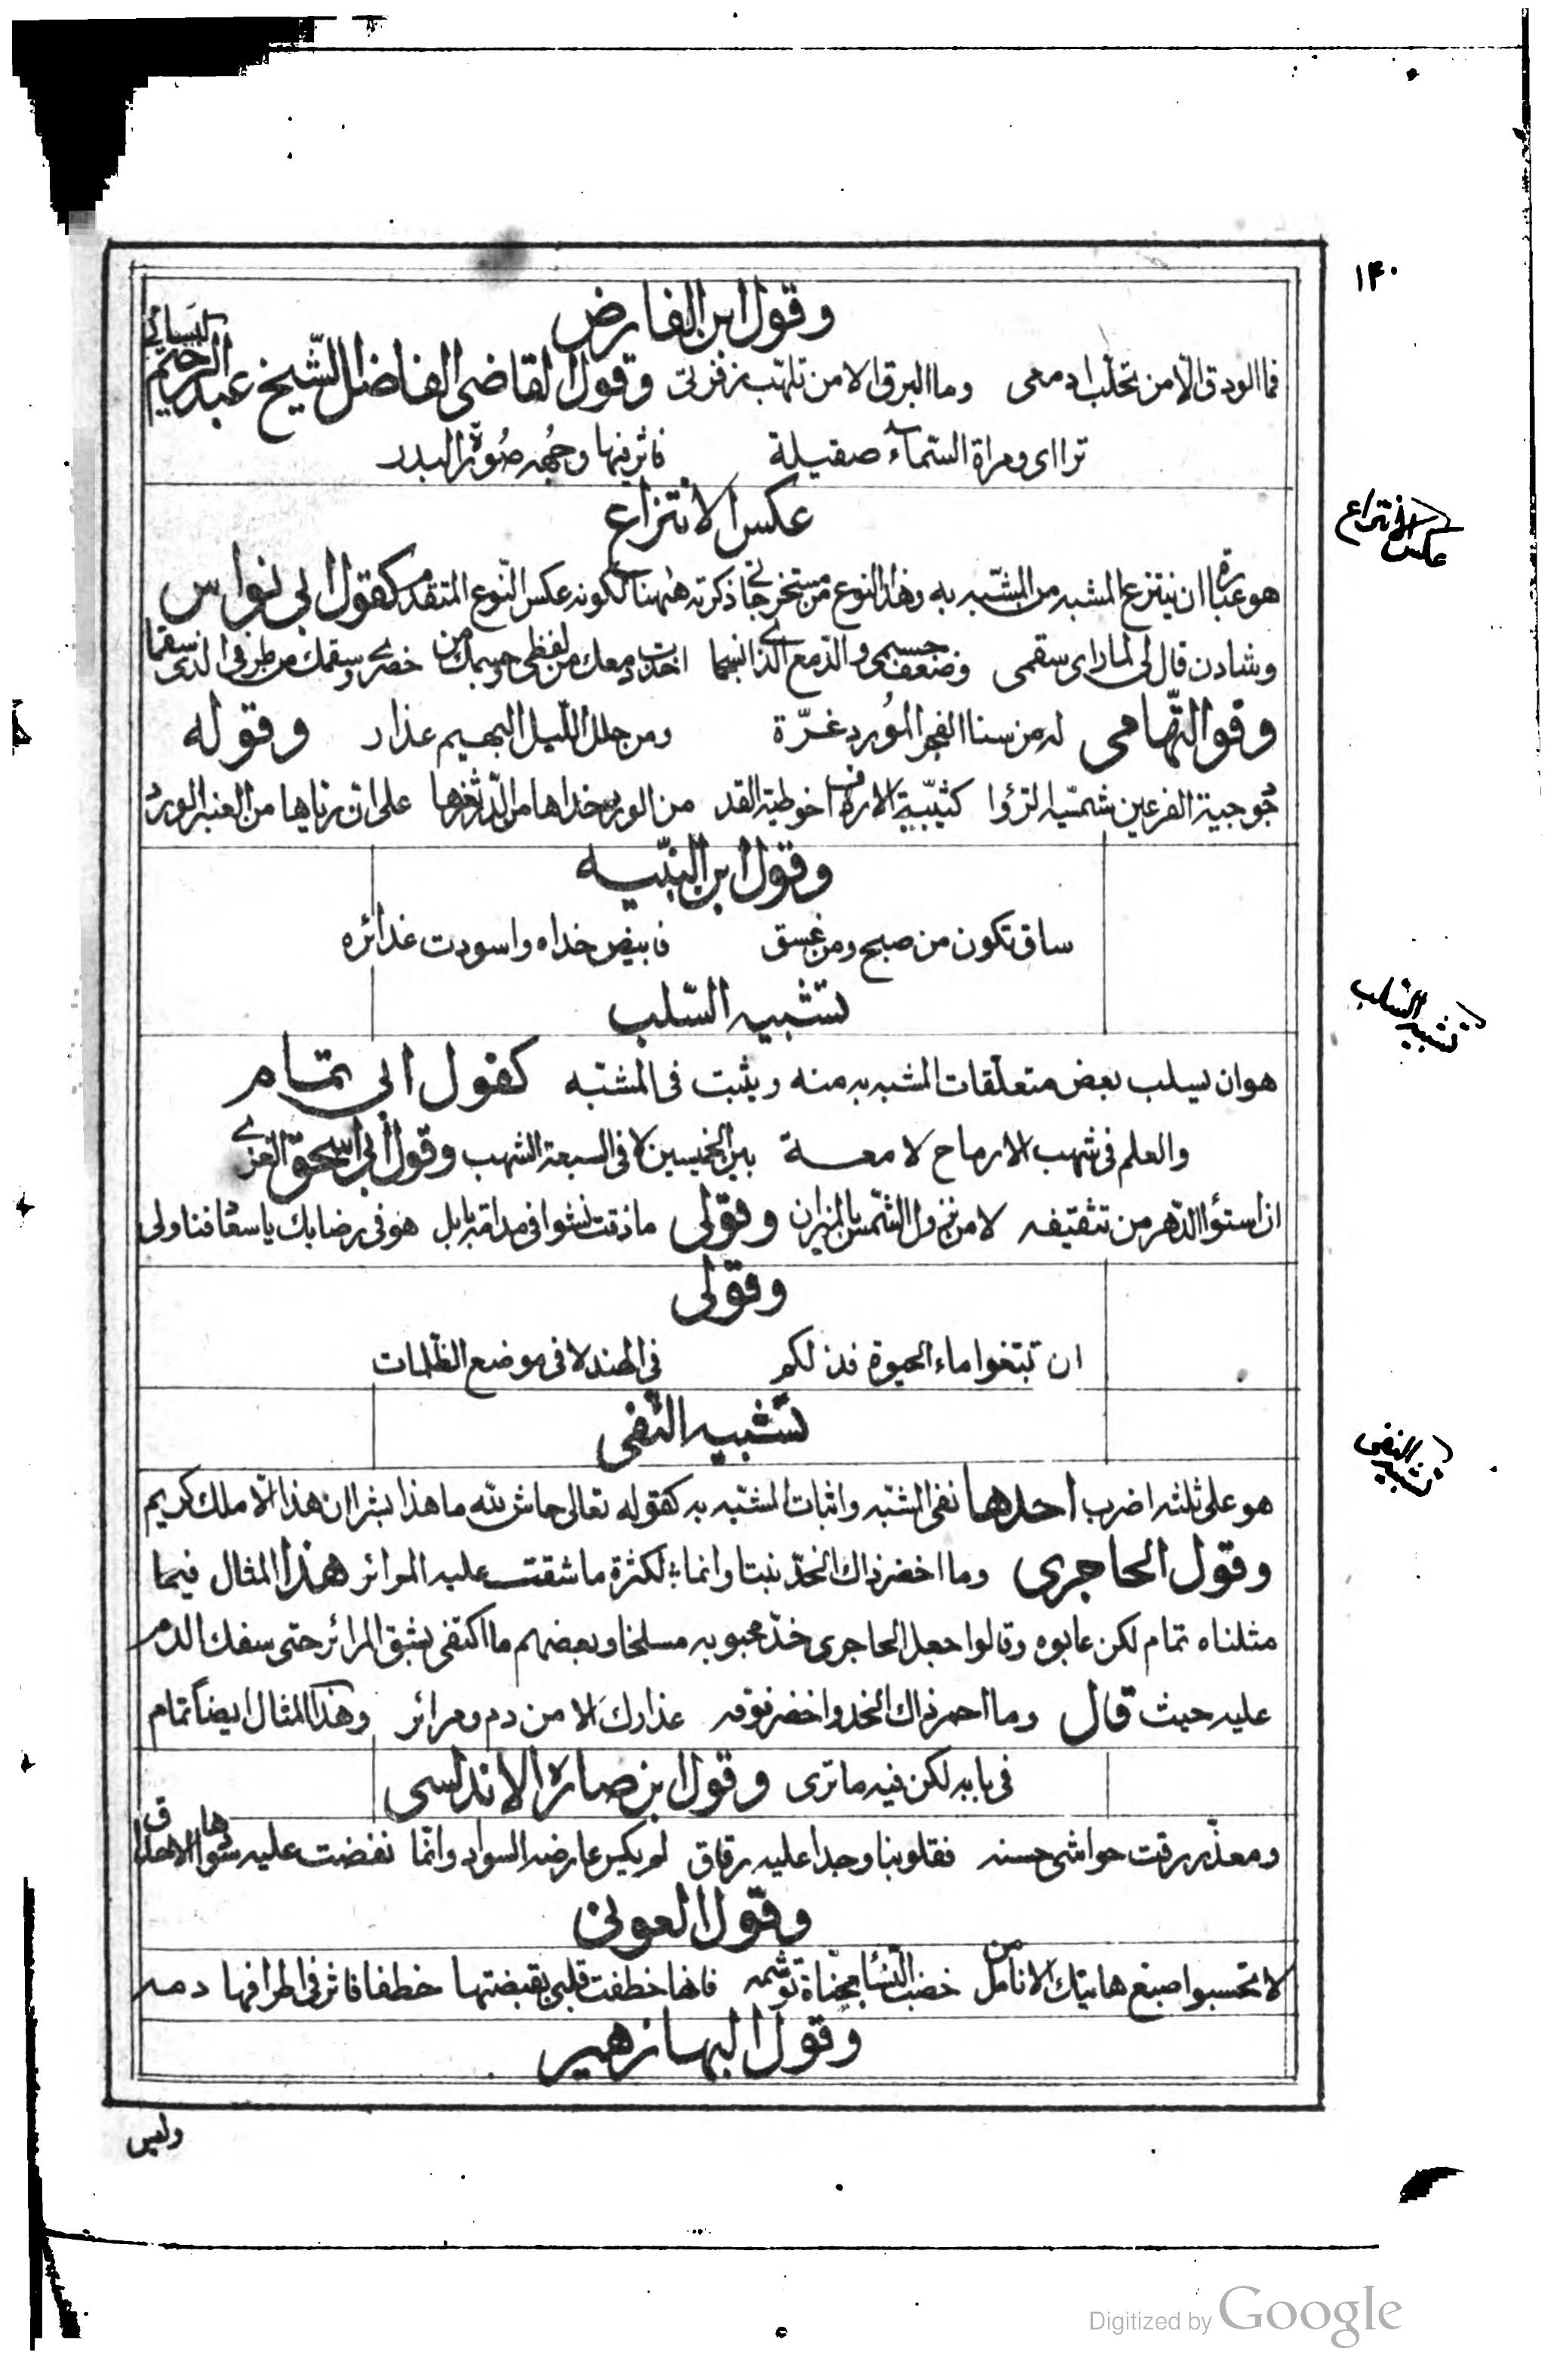 ۱۴۰
وقول ابن الفارض
فما الودق الّا من تحلّب ادمعى وما البرق الا من تلهّب زفرتى وقول القاضى الفاضل الشّيخ عبد الرحيم البيسانى
تراءى ومراة السّماء صقيلة فاثر فيها وجهه صورة البدر
عكس الانتزاع
عكس الانتزاع
هو عبارة ان ينتزع المشبه من المشبّه به وهذا النوع من مستخرجاتى ذكرته ههنا لكونه عكس النّوع المتقدم كقول ابى نواس
وشادن قال لى لما راى سقمى وضعف جسمى والدّمع الذى انسجما اخذت دمعك من لفظى وجسمك من خصرى وسقمك من طرفى الذى سقما
وقول التّهامى له من سنا الفجر المُورد غرّة ومن حلل اللّيل البهيم عذار وقوله
وقول ابن النّبيه
ساق تكون من صبح ومن غسق فابيض خداه واسودت غدائره
تشبيه السّلب
تشبيه السّلب
هو ان يسلب بعض متعلّقات المشبه به منه ويثبت فى المشبّه كقول ابى تمام
والعلم فى شهب الارماح لامعة بين الخميسين لا فى السبعة الشهب وقول ابى اسحق الغزى
ان استوا الدّهر من تثقيفه لا من نزول الشّمس بالميزان وقولى ما ذقت نشوا فى مدامة بابل هو فى رضابك يا سعاد فناولى
وقولى
ان تبتغوا ماء الحيوة فذلكم فى الهند لا فى موضع الظّلمات
تشبيه النّفى
تشبيه النفى
هو على ثلثه اضرب احدها نفى المشبّه واثبات المشبّه به كقوله تعالى حاش لله ما هذا بشرا ان هذا الّا ملك كريم
وقول الحاجرى وما اخضر ذاك الخدّ نبتا وانما لكثرة ما شقت عليه المرائر هذا المثال فيما
مثلناه تمام لكن عابوه وقالوا جعل الحاجرى خدّ محبوبه مسلخا وبعضهم ما اكتفى بشق المرائر حتى سفك الدّم
عليه حيث قال وما احمر ذاك الخد واخضر فوقه عذارك الا من دم ومرائر وهذا المثال ايضاً تمام
فى بابه لكن فيه ما ترى وقول ابن صارة الاندلسى
ومعذّر رقت حواشى حسنه فقلوبنا وجدا عليه رقاق لم يكس عارضه السواد وانّما نفضت عليه سوادها الاحداق
وقول العونى
لا تحسبوا صبغ هاتيك الانامل من خضب النّسا فاثر فى اطرافها دمه
وقول البها زهير
وليس
Digitized by Google